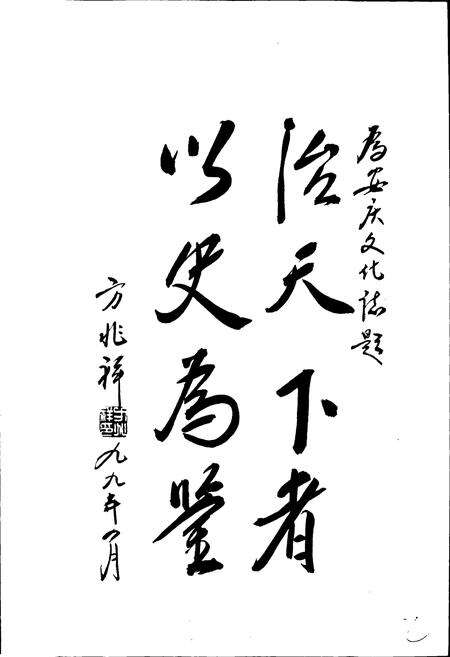 為安庆文化誌题
治天下者
以史為鉴
方兆祥
九九年八月